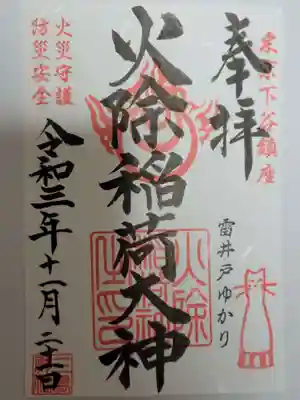 東京下谷鎮座
奉拝
雷井戸ゆかり
火除稲荷大神
火災守護
防災安全
令和三年十一月二十一日